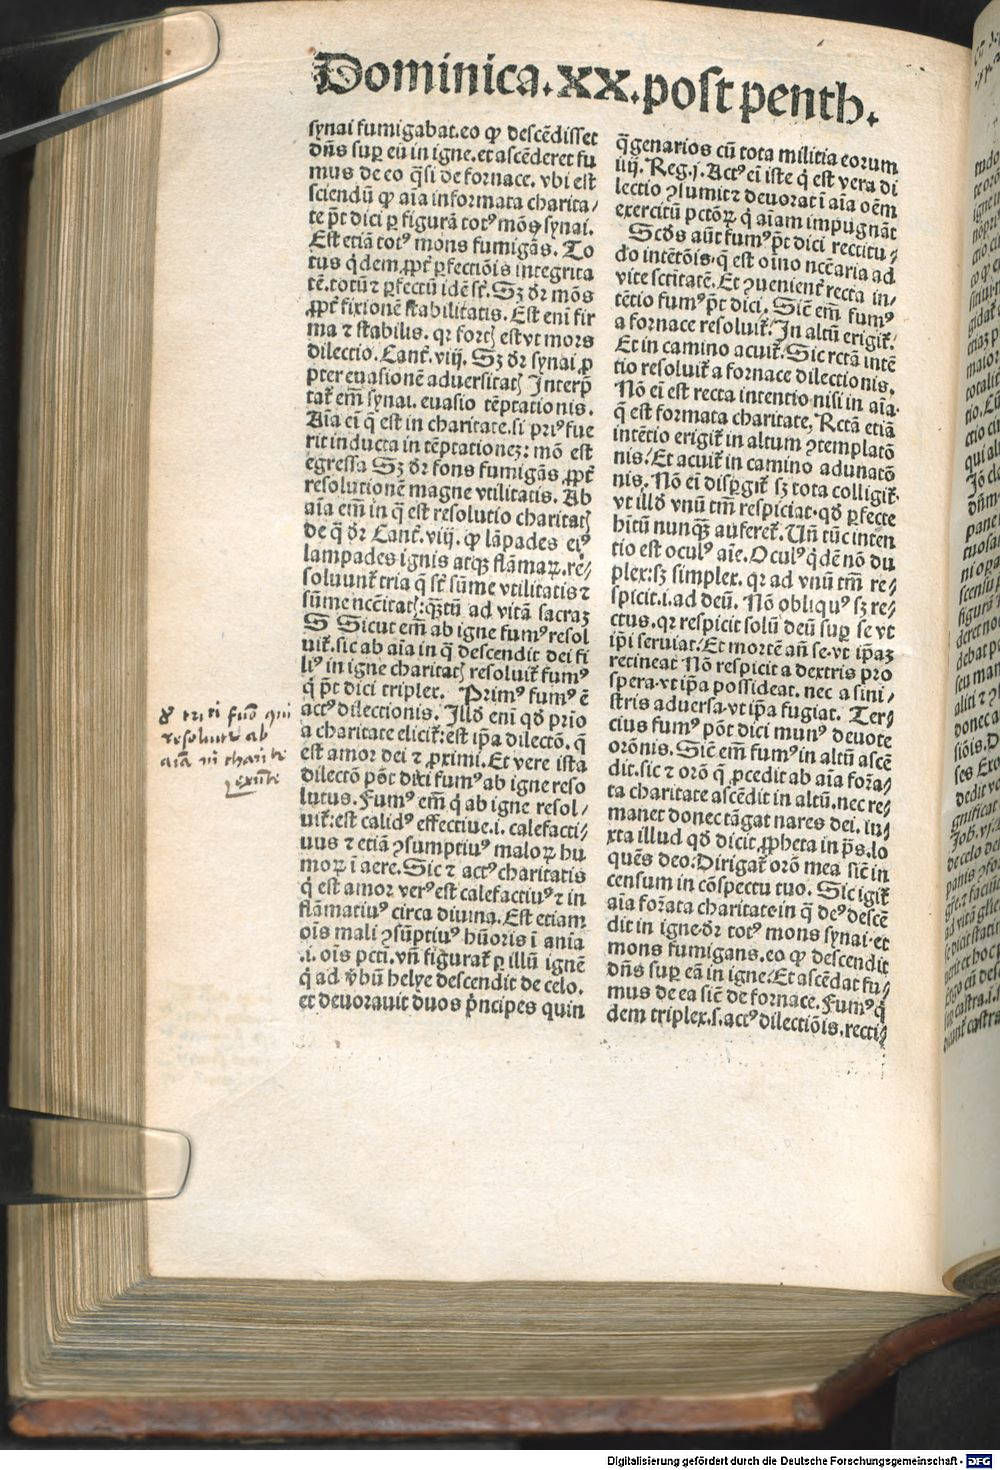 Dominica.XX.post penth.
synai fumigabat.eo ꝙ descēdisset
dn̄s suꝑ eū in igne.et ascēderet fu
mus de eo q̄si de fornace. vbi est
sciendū ꝙ aīa informata charita/
te pōt dici ꝑ figurā totꝰ mōs synai.
Est etiā totꝰ mons fumigās. To
tus qͥdem ꝓpt̄ ꝑfectiōis integrita
tē.totū ⁊ ꝑfectū idē st̄. Sꝫ dr̄ mōs
ꝓpt̄ fixionē stabilitatis. Est eni fir
ma ⁊ stabilis. qꝛ fortꝭ est vt mors
dilectio. Cant̄. viij. Sꝫ dr̄ synai ꝓ
pter euasionē aduersitatꝭ Interp̄
tat̄ em̄ synai. euasio tēptationis.
Aīa ei q̄ est in charitate.si priꝰ fue
rit inducta in tēptationeꝫ: mō est
egressa Sꝫ dr̄ fons fumigās ꝓpt̄
resolutionē magne vtilitatis. Ab
aīa em̄ in q̄ est resolutio charitatꝭ
de q̄ dr̄ Cant̄. viij. ꝙ lāpades eiꝰ
lampades ignis atqꝫ flāmaꝝ. re/
soluunt̄ tria q̄ st̄ sūme vtilitatis ⁊
sūme nccitatꝭ:qꝫtū ad vitā sacraꝫ
S Sicut em̄ ab igne fumꝰ resol
uit̄.sic ab aīa in q̄ descendit dei fi
liꝰ in igne charitatꝭ resoluit̄ fumꝰ
q̄ pōt dici triplex. Primꝰ fumꝰ ē
actꝰ dilectionis. Illd eni qd prio
a charitate elicit̄:est ipa dilectō. q̄
est amor dei ⁊ ꝓximi. Et vere ista
dilectō pōt dici fumꝰ ab igne reso
lutus. Fumꝰ em̄ qͥ ab igne resol/
uit̄:est calidꝰ effectiue.i. calefacti/
uus ⁊ etiā ꝯsumptiuꝰ maloꝝ hu
moꝝ ī aere. Sic ⁊ actꝰ charitatis
qͥ est amor verꝰ est calefactiuꝰ ⁊ in
flāmatiuꝰ circa diuina. Est etiam
ois mali ꝯsūptiuꝰ hūoris ī ania
.i. ois pcti. vn̄ figurat̄ ꝑ illū ignē
q̄ ad v̄bū helye descendit de celo.
et deuorauit duos pͥncipes quin
q̄genarios cū tota militia eorum
iiij. Reg.j. Actꝰ ei iste qͥ est vera di
lectio ꝯsumit ⁊ deuorat ī aīa oēm
exercitū pctōꝝ qͥ aīam impugnāt
Scds aūt fumꝰ pōt dici rectitu/
do intētōis. q̄ est oino nccaria ad
vite sctitatē. Et ꝯuenient̄ recta in/
tētio fumꝰ pōt dici. Sic em̄ fumꝰ
a fornace resoluit̄. In altū erigit̄.
Et in camino acuit̄. Sic rctā intē
tio resoluit̄ a fornace dilectionis.
Nō ei est recta intentio nisi in aīa.
q̄ est formata charitate, Rctā etiā
intētio erigit̄ in altum ꝯtemplatō
nis. Et acuit̄ in camino adunatō
nis. Nō ei disꝑgit̄ sꝫ tota colligit̄.
vt illd vnū tm̄ respiciat. qd ꝑfecte
hītū nunqꝫ auferet̄. Vn̄ tūc inten
tio est oculꝰ aīe. Oculꝰ qͥdē nō du
plex:sꝫ simplex. qꝛ ad vnū tm̄ re/
spicit.i.ad deū. Nō obliquꝰ sꝫ re/
ctus.qꝛ respicit solū deū suꝑ se vt
ip̄i seruiat. Et mortē an̄ se.vt ip̄aꝫ
retineat Nō respicit a dextris pro
spera.vt ip̄a possideat. nec a sini/
stris aduersa.vt ip̄a fugiat. Ter/
cius fumꝰ pōt dici munꝰ deuote
orōnis. Sic em̄ fumꝰ in altū ascē
dit.sic ⁊ orō q̄ ꝓcedit ab aīa forā/
ta charitate ascēdit in altū.nec re/
manet donec tāgat nares dei. iu/
xta illud qd dicit ꝓpheta in pͫs.lo
quēs deo:Dirigat̄ orō mea sic in
censum in cōspectu tuo. Sic igit̄
aīa forāta charitate in q̄ deꝰ descē
dit in igne.dr̄ totꝰ mons synai.et
mons fumigans.eo ꝙ descendit
dn̄s suꝑ eā in igne. Et ascēdat fu/
mus de ea sic de fornace. Fumꝰ qͥ
dem triplex.s.actꝰ dilectiōis.recti/
resoluitur ab
Digitalisierung gefördert durch die Deutsche Forschungsgemeinschaft - DFG